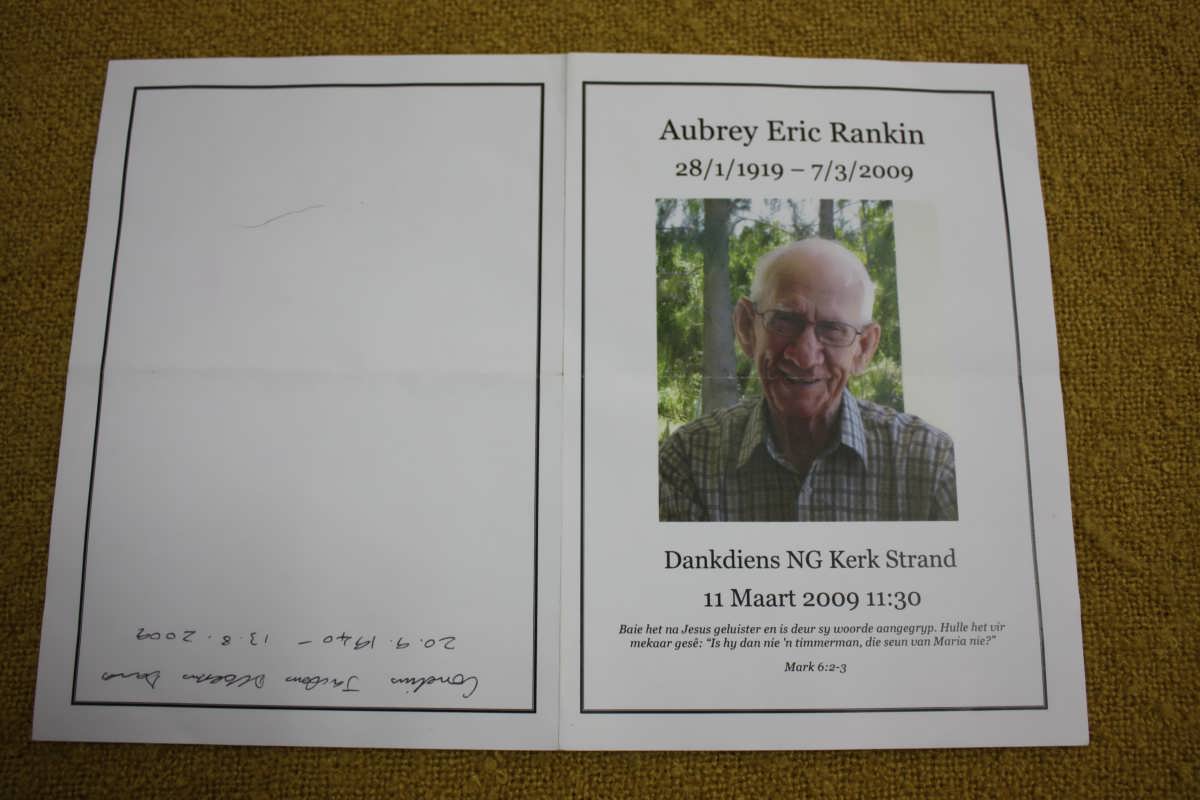 Cornelius Jacobus
20.9.1940 – 13.8.2009
Aubrey Eric Rankin
28/1/1919 – 7/3/2009
Dankdiens NG Kerk Strand
11 Maart 2009 11:30
Baie het na Jesus geluister en is deur sy woorde aangegryp. Hulle het vir
mekaar gesê: “Is hy dan nie 'n timmerman, die seun van Maria nie?”
Mark 6:2-3